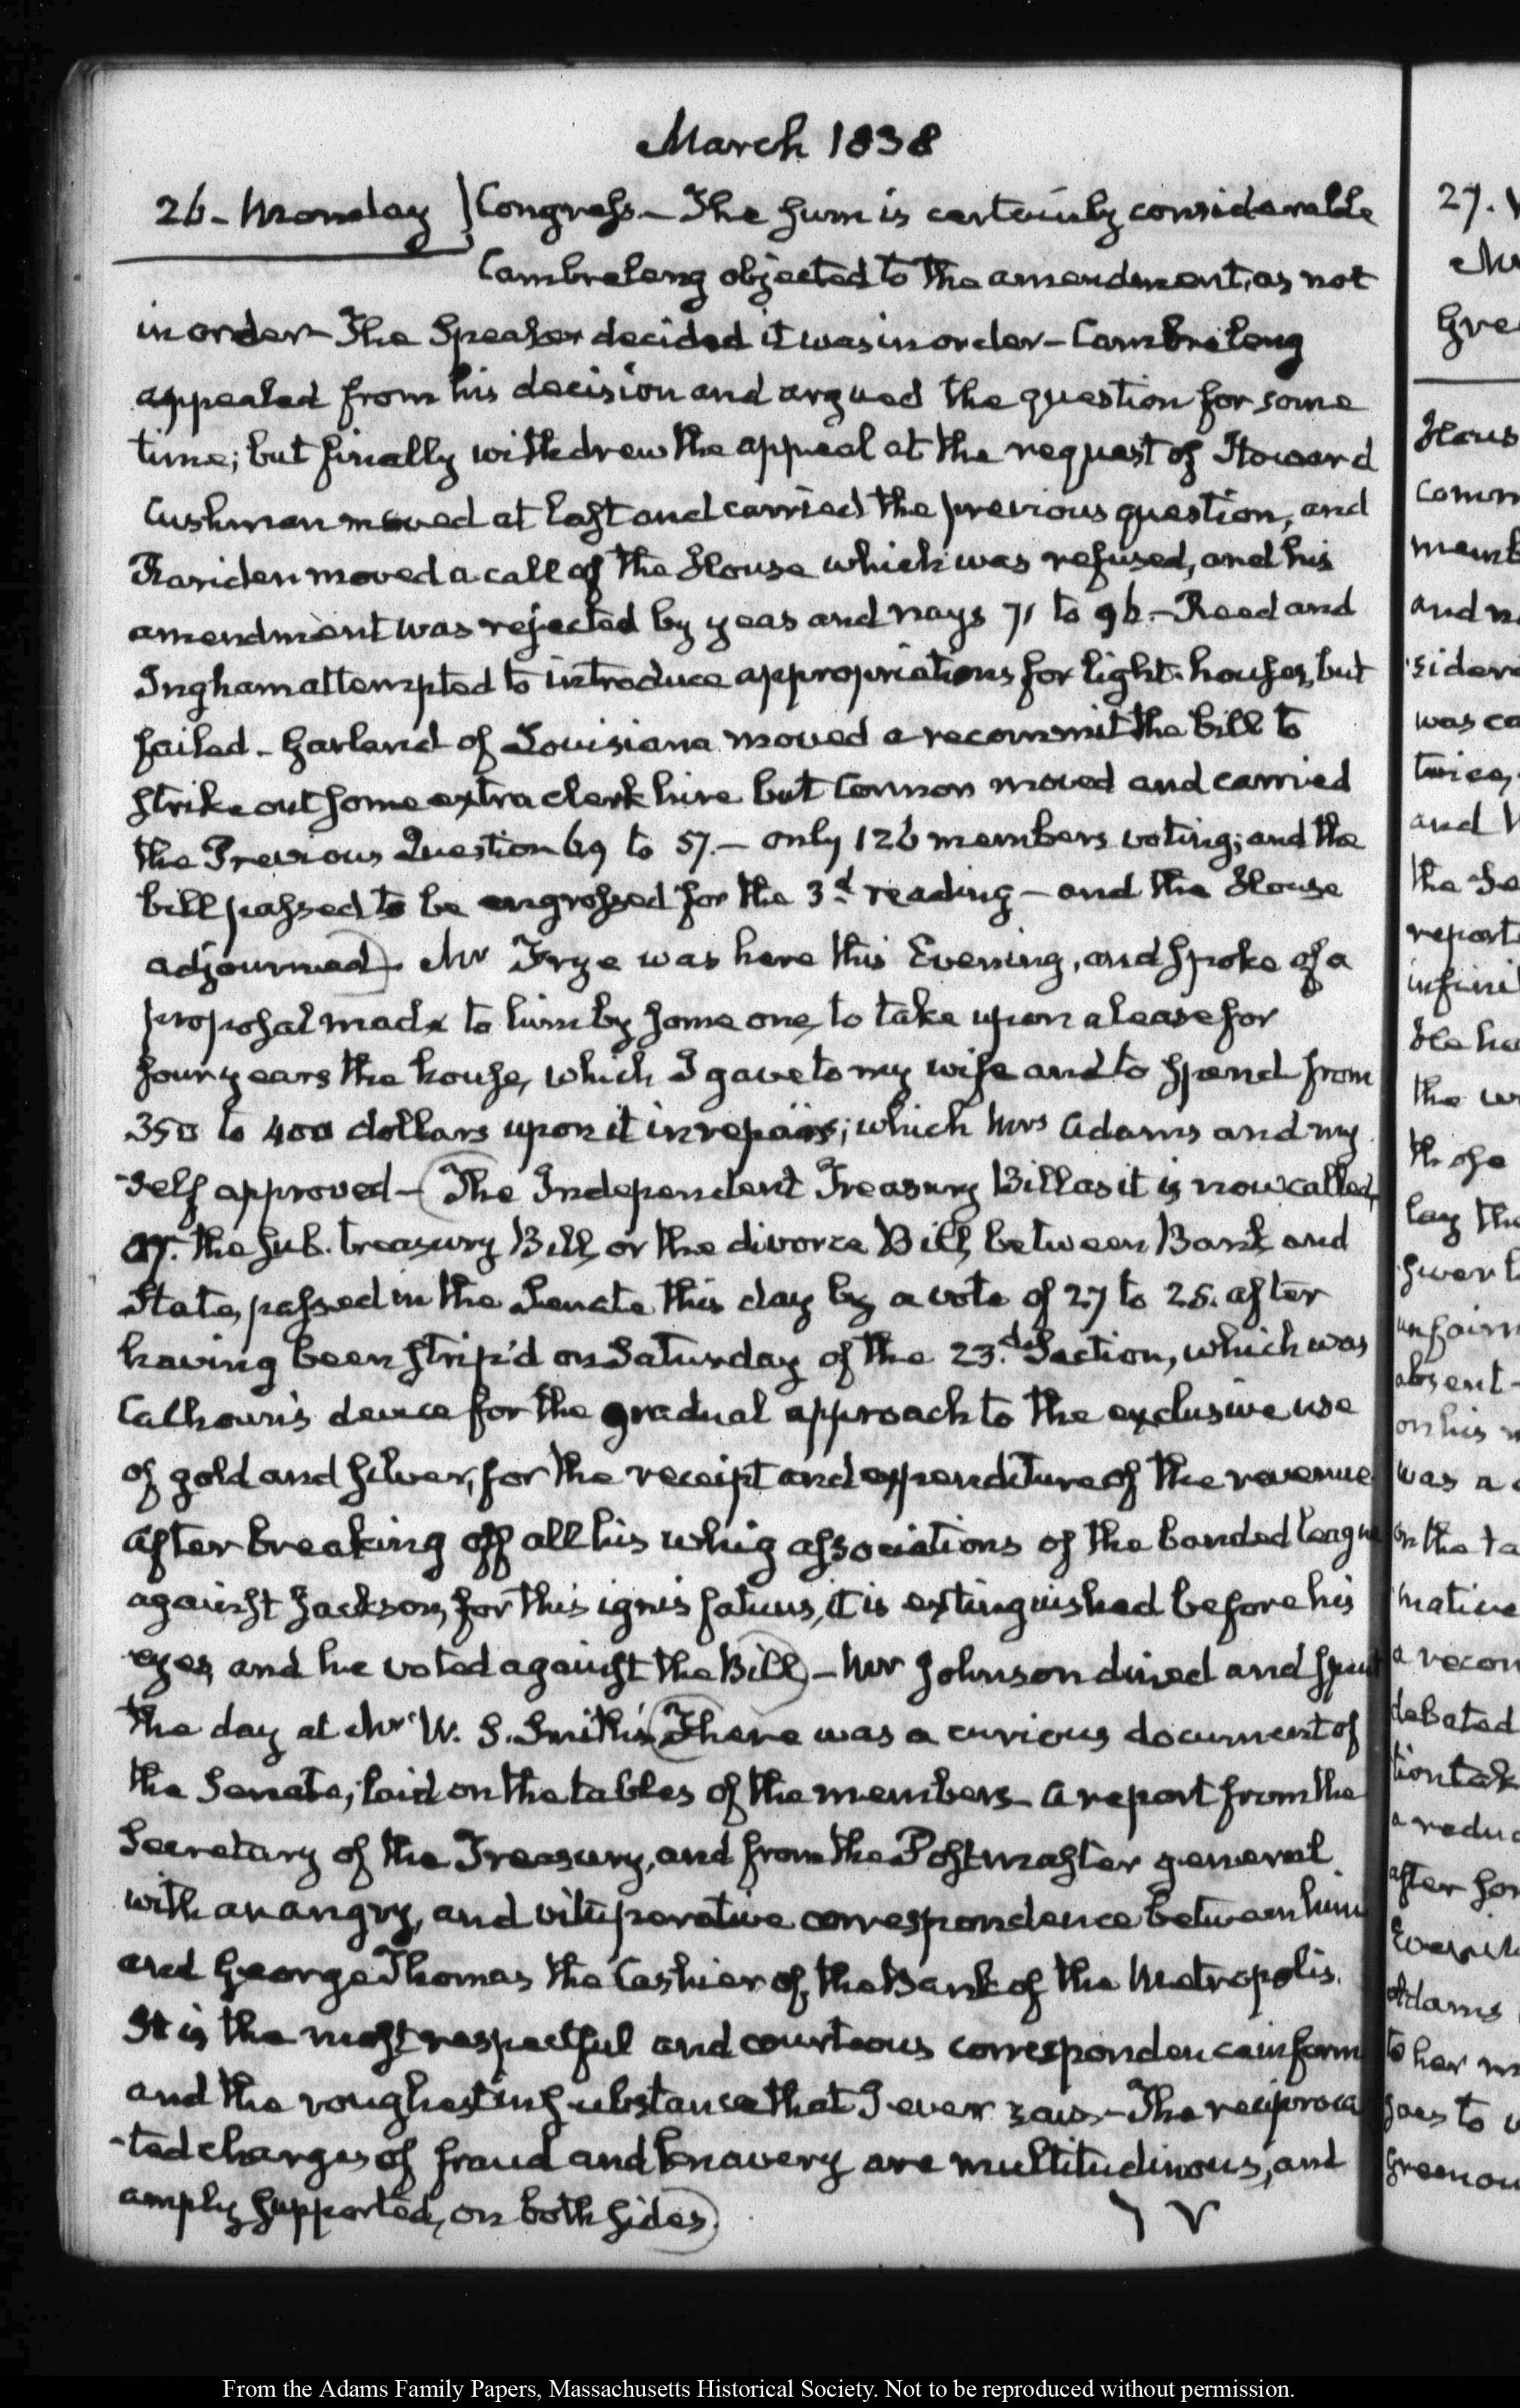 March 1838
26 - Monday } Congress - The sum is certainly considerable
Cambreleng objected to the amendment, as not
in order - The Speaker decided it was in order - Cambreleng
appealed from his decision and argued the question for some
time; but finally withdrew the appeal at the request of Howard
Cushman moved at last and carried the previous question, and
Rariden moved a call of the House which was refused, and his
amendment was rejected by yeas and nays 71 to 96. - Reed and
Ingham attempted to introduce appropriations for light-houses, but
failed - Garland of Louisiana moved a recommit the bill to
strike out some extra clerk hire but Connor moved and carried
the Previous Question 69 to 57. - only 126 members voting; and the
bill passed to be engrossed for the 3d reading - and the House
adjourned) - Mr Frye was here this Evening, and spoke of a
proposal made to him by some one, to take upon a lease for
four years the house, which I gave to my wife and to spend from
350 to 400 dollars upon it in repairs; which Mrs Adams and my
-self approved - (The Independent Treasury Bill as it is now called,
or the sub. treasury Bill, or the divorce Bill, between Bank and
State, passed in the Senate this day by a vote of 27 to 25. after
having been strip'd on Saturday of the 23.d Section, which was
Calhoun's device for the gradual approach to the exclusive use
of gold and silver, for the receipt and expenditure of the revenue
After breaking off all his whig associations of the banded league
against Jackson, for this ignis fatuus, it is extinguished before his
eyes, and he voted against the Bill) - Mr Johnson dined and spent
the day at Mr W. S. Smith's (There was a curious document of
the Senate, laid on the tables of the members - a report from the
Secretary of the Treasury, and from the Postmaster general
with an angry, and vituperative correspondence between him
and George Thomas the Cashier of the Bank of the Metropolis.
It is the most respectful and courteous correspondence in form
and the roughest in substance that I ever saw - The reciproca
-ted charges of fraud and knavery are multitudinous, and
amply supported, on both sides)
27.
Gre
Hous
comm
memb
and n
sider
was ca
twice,
and
the Se
report
infini
He ha
the w
those
lay the
swer
unfair
absent -
on his
was a
on the ta
mative
a recon
debated
tion tak
a reduc
after so
Adams
to her m
goes to
Greenou
From the Adams Family Papers, Massachusetts Historical Society. Not to be reproduced without permission.